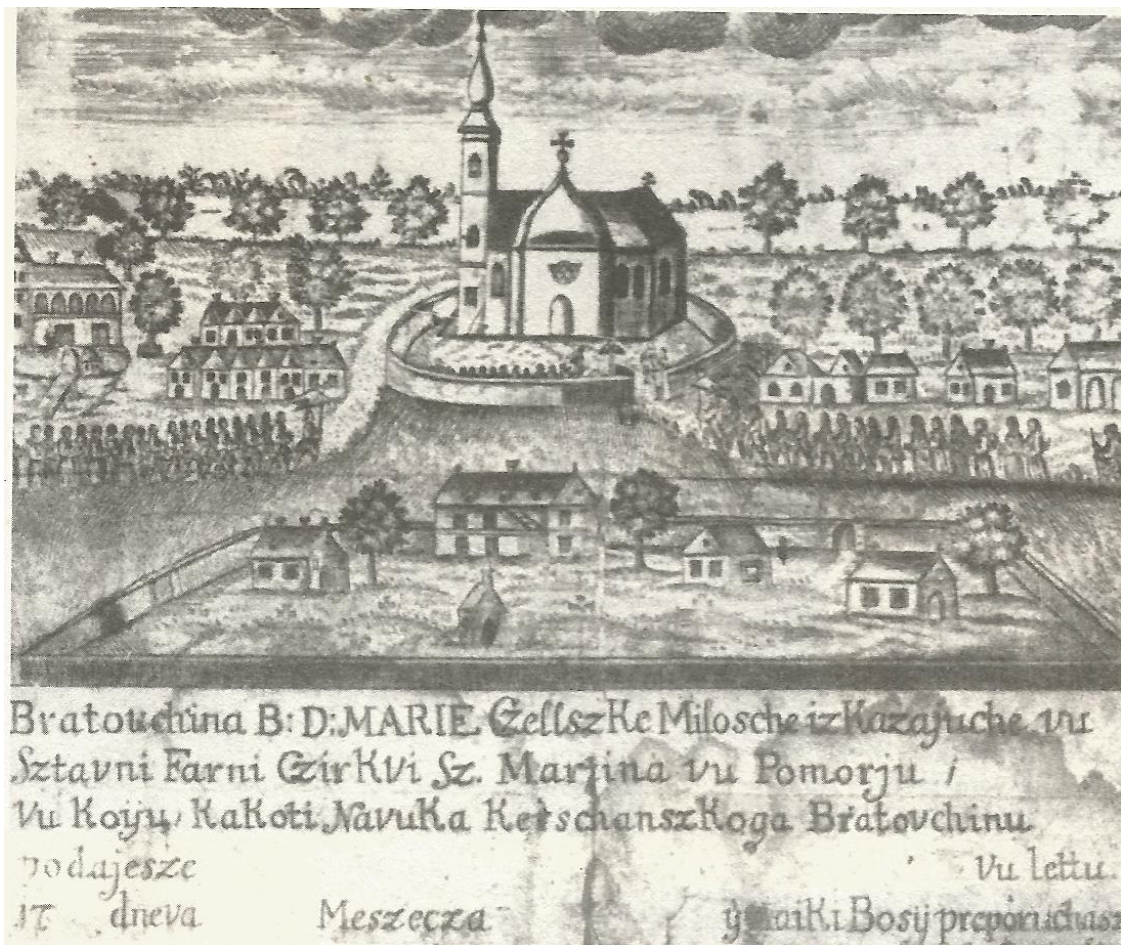 Bratouchina B: D: MARIE Czellszke Milosche izkazajuche vu
Sztavni Farni Czirkvi Sz. Martina vu Pomorju ;
Vu Koyu, Kakoti Navuka Kerschanszkoga Bratovchinu
podajesze Vu lettu.
17 dneva Meszecza Bosij preporuchasz